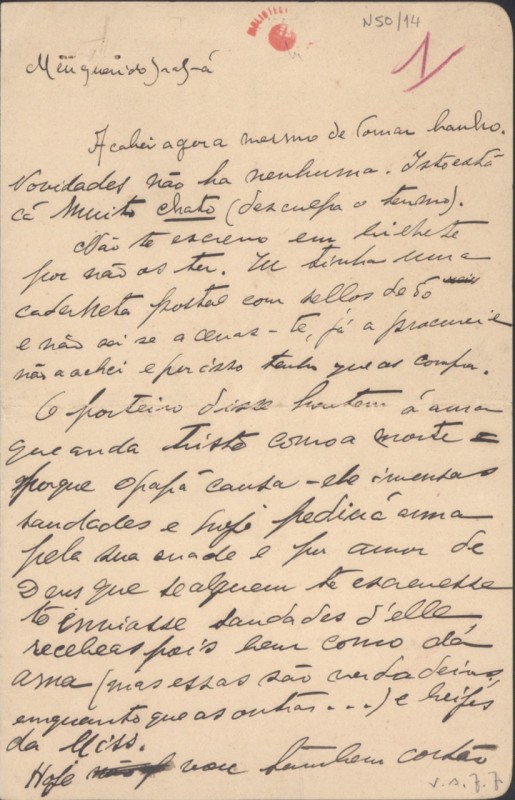 BIBLIOTECA
N50/14
Meu querido Papá
Acabei agora mesmo de tomar banho.
Novidades não ha nenhuma. Isto está
cá muito chato (desculpa o termo).
Não te escrevo em bilhete
por não os ter. Eu tinha uma
caderneta postal com sellos de
e não sei se a -te, já a procurei e
não a achei e por isso tenho que as compr.
O porteiro disse hontem á ama
que anda triste como a morte =
porque o papá causa-ele imensas
saudades e hoje pediu á ama
pela sua saude e por amor de
Deus que se alguem te escrevesse
te enviasse saudades d'elle
recebeas pois bem como dá
ama (mas essas são verdadeiras,
emquanto que as outras...) e beijos
da Miss.
Hoje vou tambem cortar
v. s. f. f.